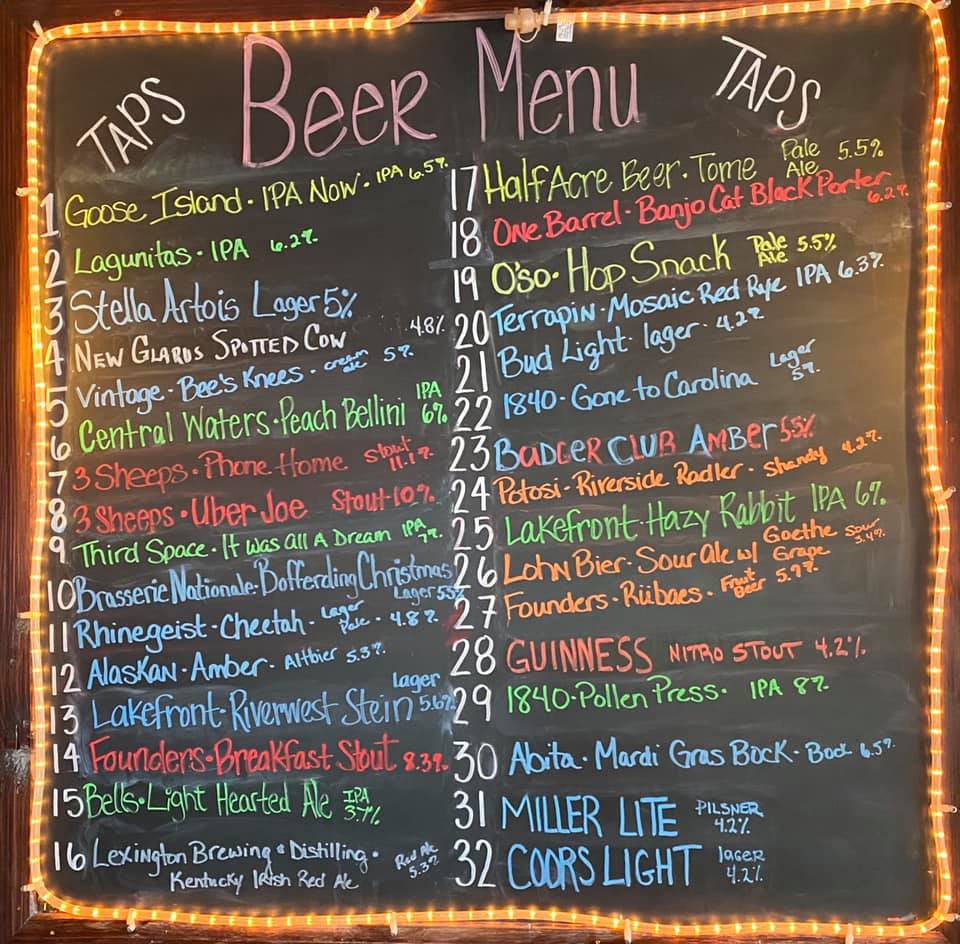 TAPS
Beer Menu
TAPS
1 Goose Island · IPA Now · IPA 6.5%
2 Lagunitas · IPA 6.2%
3 Stella Artois Lager 5%
4 New Glarus Spotted Cow 4.8%
5 Vintage · Bee's Knees · cream ale 5%
6 Central Waters · Peach Bellini IPA 6%
7 3 Sheeps · Phone Home Stout 11.1%
8 3 Sheeps · Uber Joe Stout-10%
9 Third Space · It was All A Dream IPA 7%
10 Brasserie Nationale · Bofferding Christmas Lager 5.5%
11 Rhinegeist · Cheetah · Lager Pale · 4.8%
12 Alaskan · Amber · Altbier 5.3%
13 Lakefront · Riverwest Stein Lager 5.6%
14 Founders · Breakfast Stout 8.3%
15 Bells · Light Hearted Ale IPA 3.7%
16 Lexington Brewing & Distilling · Red Ale 5.3%
Kentucky Irish Red Ale
17 Half Acre Beer · Tome Pale Ale 5.5%
18 One Barrel · Banjo Cat Black Porter 6.2%
19 O'so · Hop Snack Pale Ale 5.5%
20 Terrapin · Mosaic Red Rye IPA 6.3%
21 Bud Light · lager · 4.2%
22 1840 · Gone to Carolina Lager 5%
23 Badger Club Amber 5.5%
24 Potosi - Riverside Radler · Shandy 4.2%
25 Lakefront · Hazy Rabbit IPA 6%
26 Lohn Bier · Sour Ale w/ Goethe Grape Sour
27 Founders · Rübaes · Fruit Beer 5.7%
28 GUINNESS NITRO STOUT 4.2%
29 1840 · Pollen Press · IPA 8%
30 Abita · Mardi Gras Bock · Bock 6.5%
31 MILLER LITE PILSNER 4.2%
32 COORS LIGHT lager 4.2%